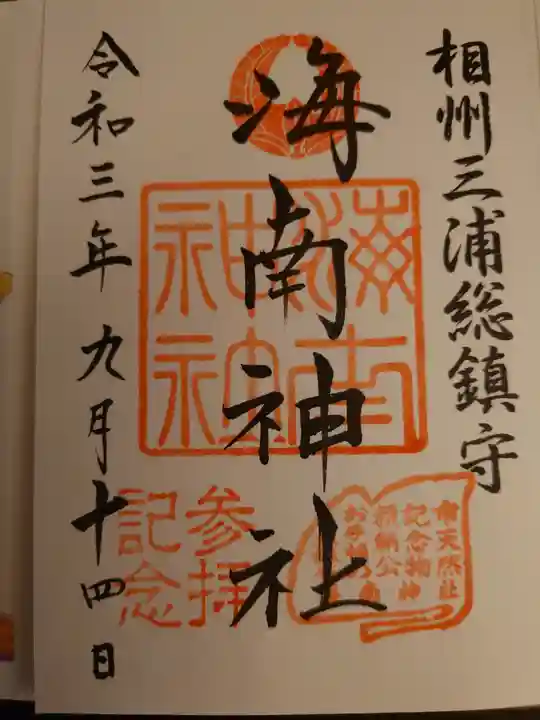 相州三浦総鎮守
海南神社
令和三年九月十四日
海南
神社
参拝
記念
市天然
記念物